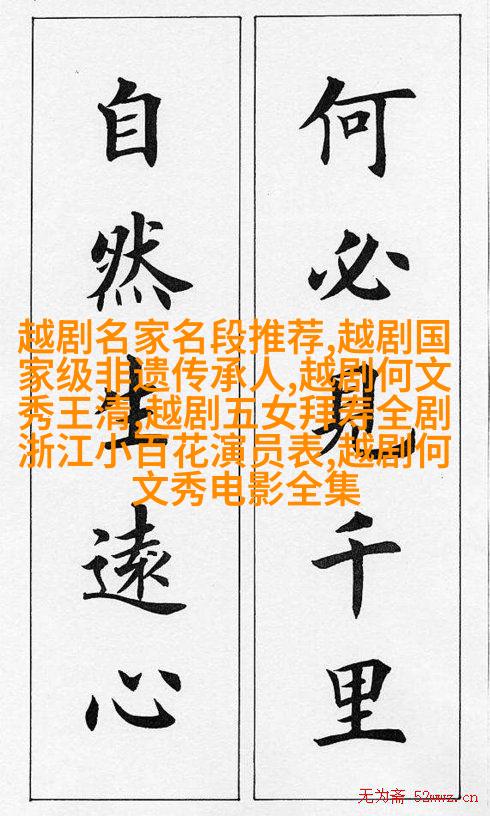 何必見千里
自然生遠心
越剧名家名段推荐,越剧国
家级非遗传承人,越剧何文
秀王清,越剧五女拜寿全剧
浙江小百花演员表,越剧何
文秀电影全集
无为斋 52wwz.cn